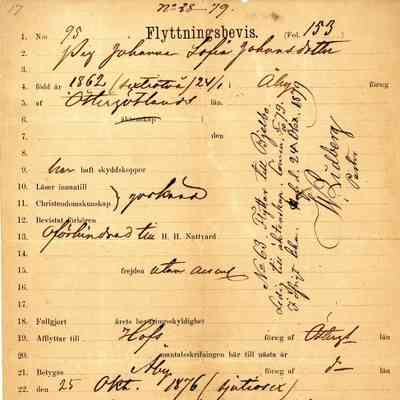 17
No 38 - 79.
1. N:o 95 Flyttningsbevis. (Fol. 153)
2. Pig Johanna Sofia Johansdotter
3.
4. född år 1862 (sextiotvå) 24/1 i Åby föreg
5. af Östergötlands län.
6. äktenskap
7. den
8.
9. har haft skyddskoppor
10. Läser innantill
11. Christendomskunskap } godkänd
12. Bevistat förhören
13. oförhindrad till H. H. Nattvard
14.
15. frejden utan
16.
17.
18. Fullgjort årets beväringsskyldighet
19. Afflyttar till Hofs föreg af Östergt län
20. mantalsskrifningen här till nästa år
21. Betygas Åby föreg af d-o län
22. den 25 Okt. 1876 (sjutiosex)
No 63 Flyttar till Bjelbo
Ledig till äktenskap
24 1879
Pastor